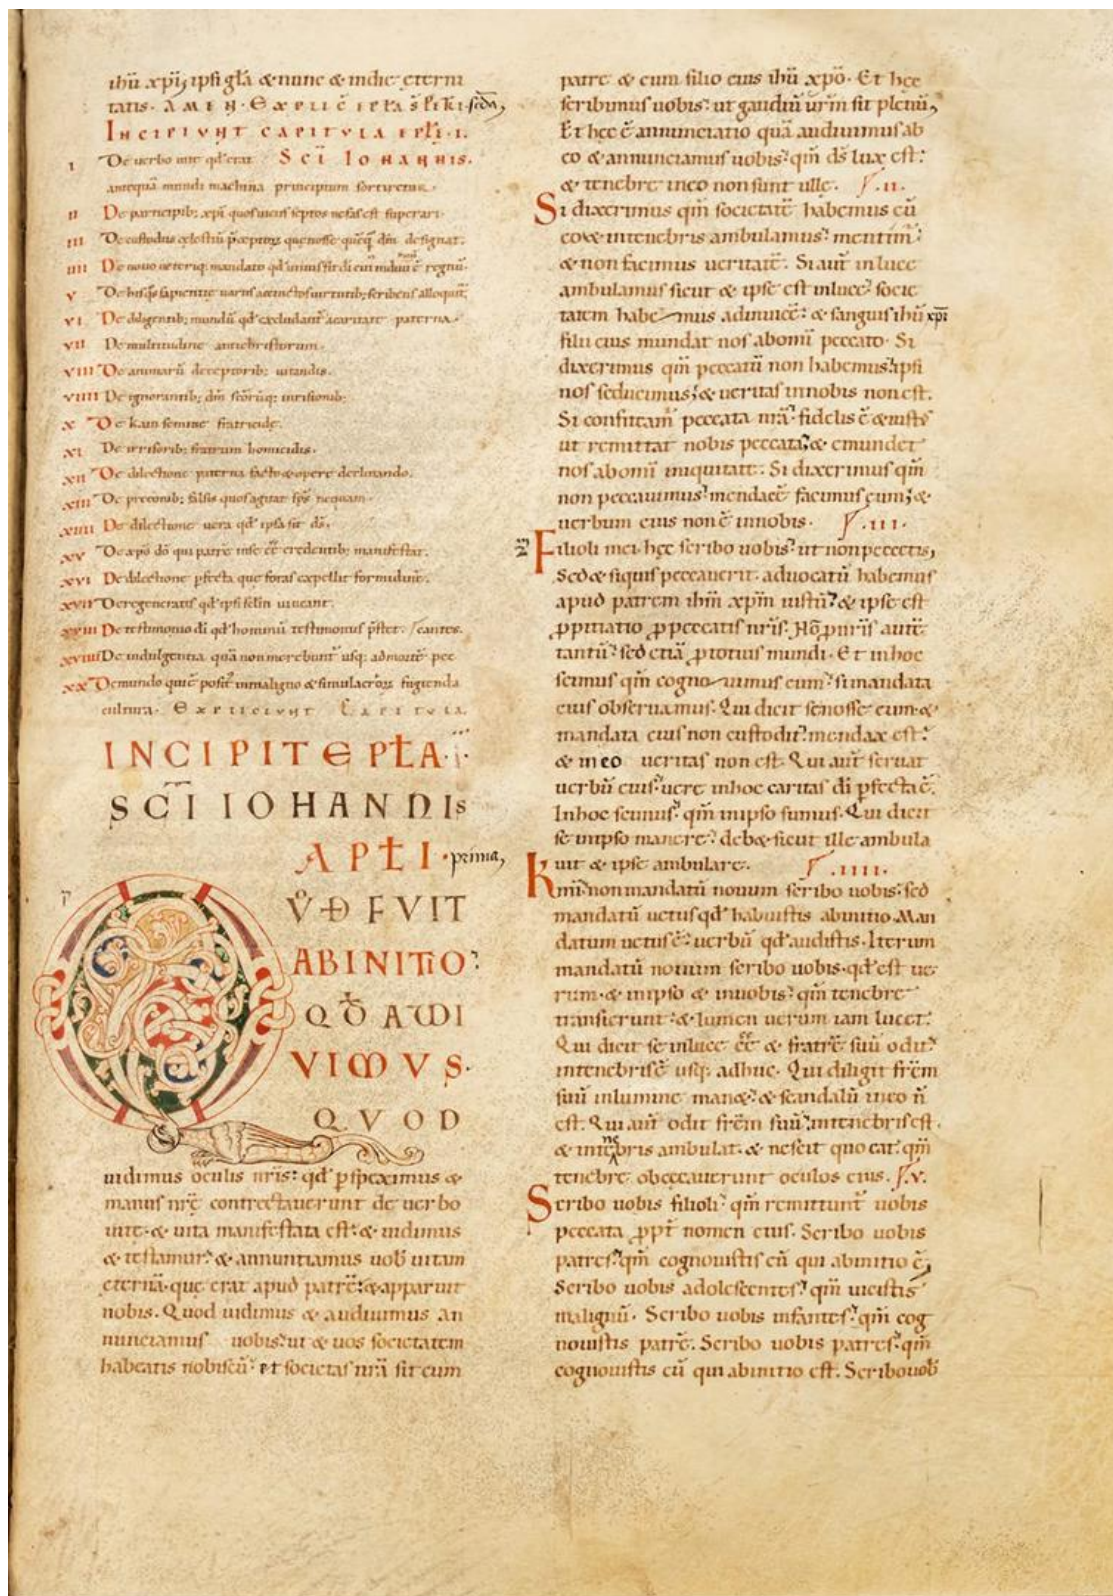 ihū xp̄i, ipsi gl̄a & nunc & in die ęterni
tatis. AMEN. EXPLIC̄ EPL̄A S̄ PETRI. sēda,
INCIPIVNT CAPITVLA EPL̄I. I.
I De verbo uitę qd' erat SC̄I IOHANNIS.
antequā mundi machina principium sortiretur.
II De participib; xp̄i quos
nefas est superari.
III De custodiis cęlestiū p̄ceptorꝝ
dm̄ designat.
IIII De nouo ueteriq; mandato qd'
regnū.
V De
sapientię uariis
uirtutib; scribens alloquit̄.
VI De diligentib; mundū qd' excludant̄ a caritate paterna.
VII De multitudine antichristorum.
VIII De animarū deceptorib; uitandis.
VIIII De ignorantib; dm̄ scōrūq; inrisionib;
X De kain semine fratricidę.
XI De irrisorib; fratrum homicidis.
XII De dilectione
facto & opere declinando.
XIII De preconib; falsis quos agitat sp̄s nequam.
XIIII De dilectione uera qd' ipsa sit ds̄.
XV De xp̄o dō qui patrē in se ēē credentib; manifestat.
XVI De dilectione pfecta que foras expellit formidinē.
XVII De regeneratis qd' ipsi
uincant.
XVIII De testimonio dī qd' hominū testimoniis p̄stet. / cantes.
XVIIII De indulgentia quā non merebunt̄ usq; ad mortē pec
XX De mundo qui ē posit̄ in maligno & simulacrorꝝ fugienda
cultura. EXPLICIVNT CAPITVLA.
INCIPIT EPL̄A. I.
SC̄I IOHANNIS
APL̄I. prima,
QD FVIT
AB INITIO
QD AVDI
VIMVS.
QVOD
uidimus oculis nr̄is: qd' pspeximus &
manus nr̄ę contrectauerunt de uerbo
uitę. & uita manifestata est: & uidimus
& testamur: & annuntiamus uob̄ uitam
ęternā. quę erat apud patrē: & apparuit
nobis. Quod uidimus & audiuimus an
nunciamus uobis: ut & uos societatem
habeatis nobiscū: et societas nr̄a sit cum
patre & cum filio eius ihū xp̄o. Et hęc
scribimus uobis: ut gaudiū ur̄m sit plenū,
Et hęc ē annunciatio quā audiuimus ab
eo & annunciamus uobis: qm̄ ds̄ lux est:
& tenebrę in eo non sunt ullę. .II.
Si dixerimus qm̄ societatē habemus cū
eo & in tenebris ambulamus: mentim̄:
& non facimus ueritatē. Si aut̄ in luce
ambulamus sicut & ipse est in luce: socie
tatem habemus ad inuicē: & sanguis ihū xp̄i
filii eius mundat nos ab om̄i peccato. Si
dixerimus qm̄ peccatū non habemus: ipsi
nos seducimus; & ueritas in nobis non est.
Si confiteam̄ peccata nr̄a: fidelis ē & iust᷒
ut remittat nobis peccata: & emundet
nos ab om̄i iniquitate. Si dixerimus qm̄
non peccauimus: mendacē facimus eum; &
uerbum eius non ē in nobis. .III.
Filioli mei. hęc scribo uobis: ut non peccetis,
Sed & si quis peccauerit. aduocatū habemus
apud patrem ihm̄ xp̄m iustū: & ipse est
ꝓpitiatio ꝓ peccatis nr̄is. Nō ꝓ nr̄is autē
tantū: sed etiā ꝓ totius mundi. Et in hoc
scimus qm̄ cognouimus eum: si mandata
eius obseruamus. Qui dicit se nosse eum. &
mandata eius non custodit: mendax est:
& in eo ueritas non est. Qui aut̄ seruat
uerbū eius: uere in hoc caritas dī pfecta ē.
In hoc scimus: qm̄ in ipso sumus. Qui dicit
se in ipso manere: deb& sicut ille ambula
uit & ipse ambulare. .IIII.
Km̄i: non mandatū nouum scribo uobis: sed
mandatū uetus qd' habuistis ab initio. Man
datum uetus ē: uerbū qd' audistis. Iterum
mandatū nouum scribo uobis. qd' est ue
rum. & in ipso & in uobis: qm̄ tenebrę
transierunt: & lumen uerum iam lucet.
Qui dicit se in luce ēē & fratrē suū odit:
in tenebris ē usq; adhuc. Qui diligit frēm
suū in lumine man&: & scandalū in eo n̄
est. Qui aut̄ odit frēm suū: in tenebris est.
& in tenebris ambulat. & nescit quo eat: qm̄
tenebrę obcęcauerunt oculos eius. .V.
Scribo uobis filioli: qm̄ remittunt̄ uobis
peccata ꝓpt̄ nomen eius. Scribo uobis
patres: qm̄ cognouistis eū qui ab initio ē,
Scribo uobis adolescentes: qm̄ uicistis
malignū. Scribo uobis infantes: qm̄ cog
nouistis patrē. Scribo uobis patres: qm̄
cognouistis eū qui ab initio est. Scribo uob̄